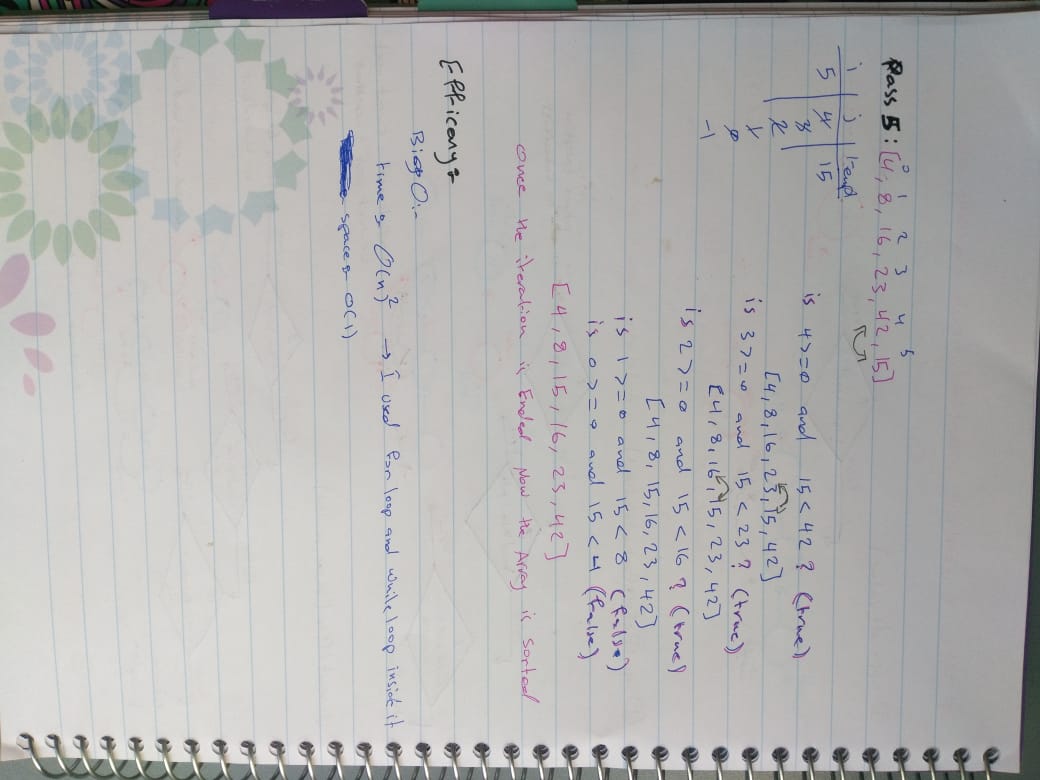 Pass 5:
0 1 2 3 4 5
[4, 8, 16, 23, 42, 15]
i | j | temp
5 | 4 | 15
3
2
1
0
-1
is 4>=0 and 15<42? (true)
[4,8,16,23,15,42]
is 3>=0 and 15<23? (true)
[4,8,16,15,23,42]
is 2>=0 and 15<16? (true)
[4,8,15,16,23,42]
is 1>=0 and 15<8 (false)
is 0>=0 and 15<4 (false)
[4,8,15,16,23,42]
once the iteration is Ended Now the Array is sorted
Efficany:
Big O:-
time: O(n)² → I used for loop and while loop inside it
space: O(1)